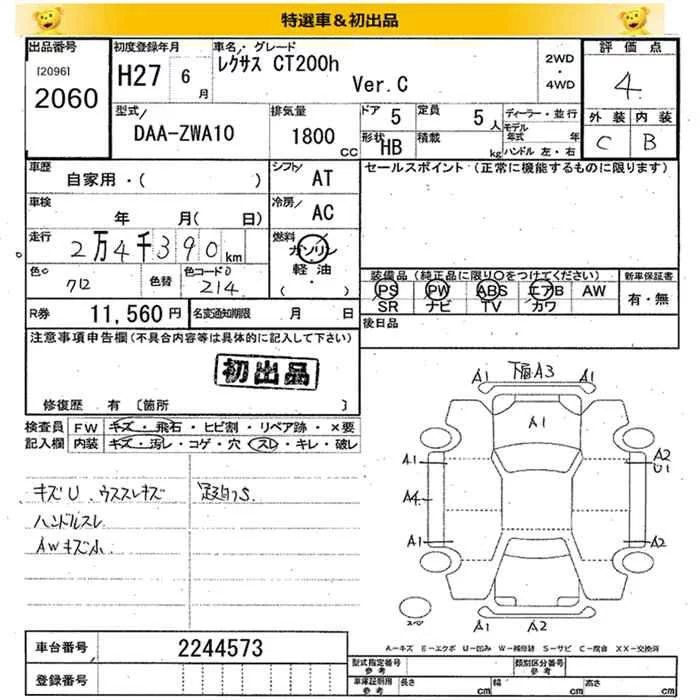 特選車＆初出品
出品番号 初度登録年月 車名・グレード 評価点
[2096] 2060 H27 6月 レクサス CT200h Ver.C 2WD・4WD 4
型式 DAA-ZWA10 排気量 1800 CC ドア 5 定員 5人 ディーラー・並行 外装 内装
形状 HB 積載 kg モデル年式 年 ハンドル 左・右 C B
車歴 自家用・( ) シフト AT セールスポイント(正常に機能するものに限ります)
車検 年 月( 日) 冷房 AC
走行 2万4千390km 燃料 ガソリン 軽油 ・( )
装備品(純正品に限り○をつけてください) 新車保証書
色 クロ 色替 色コード 214 PS PW ABS エアB AW 有・無
SR ナビ TV カワ
R券 11,560円 名変通知期限 月 日 後日品
注意事項申告欄(不具合内容等は具体的に記入して下さい)
初出品
修復歴 有 [箇所 ]
検査員記入欄 FW キズ・飛石・ヒビ割・リペア跡・×要
内装 キズ・汚レ・コゲ・穴・スレ・キレ・破レ
キズU、ウススレキズ
ハンドルスレ
AWキズ小
A1 下廻A3 A1
A1
A1 A2
U1
A4
A1 A2
スペア
A1 A2
A-キズ E-エクボ U-凹み W-補修跡 S-サビ C-腐食 XX-交換済
車台番号 2244573 型式指定番号 参考 類別区分番号 参考
登録番号 車庫証明用 参考 長さ cm 幅 cm 高さ cm